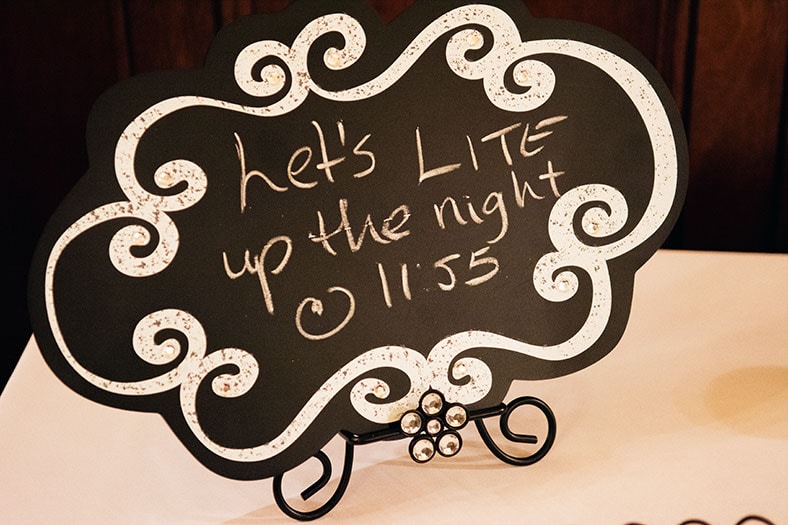 Let's LITE
up the night
@ 11:55